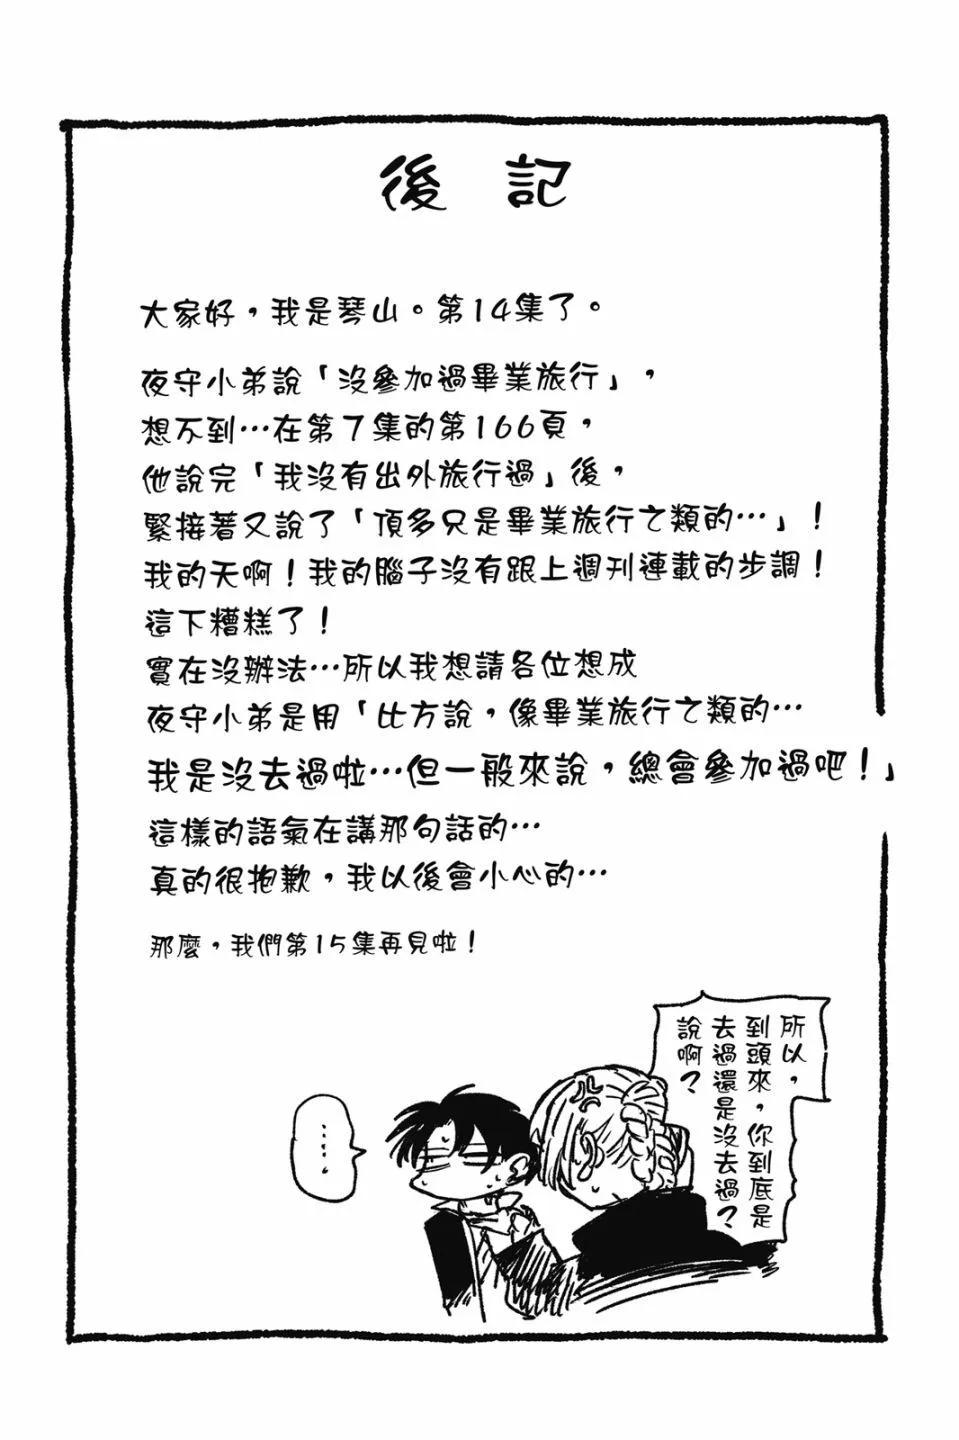 後記
大家好，我是琴山。第14集了。
夜守小弟說「沒參加過畢業旅行」，
想不到…在第7集的第166頁，
他說完「我沒有出外旅行過」後，
緊接著又說了「頂多只是畢業旅行之類的…」！
我的天啊！我的腦子沒有跟上週刊連載的步調！
這下糟糕了！
實在沒辦法…所以我想請各位想成
夜守小弟是用「比方說，像畢業旅行之類的…
我是沒去過啦…但一般來說，總會參加過吧！」
這樣的語氣在講那句話的…
真的很抱歉，我以後會小心的…
那麼，我們第15集再見啦！
所以，
到頭來，你到底是
去過還是沒去過？
說啊？
……